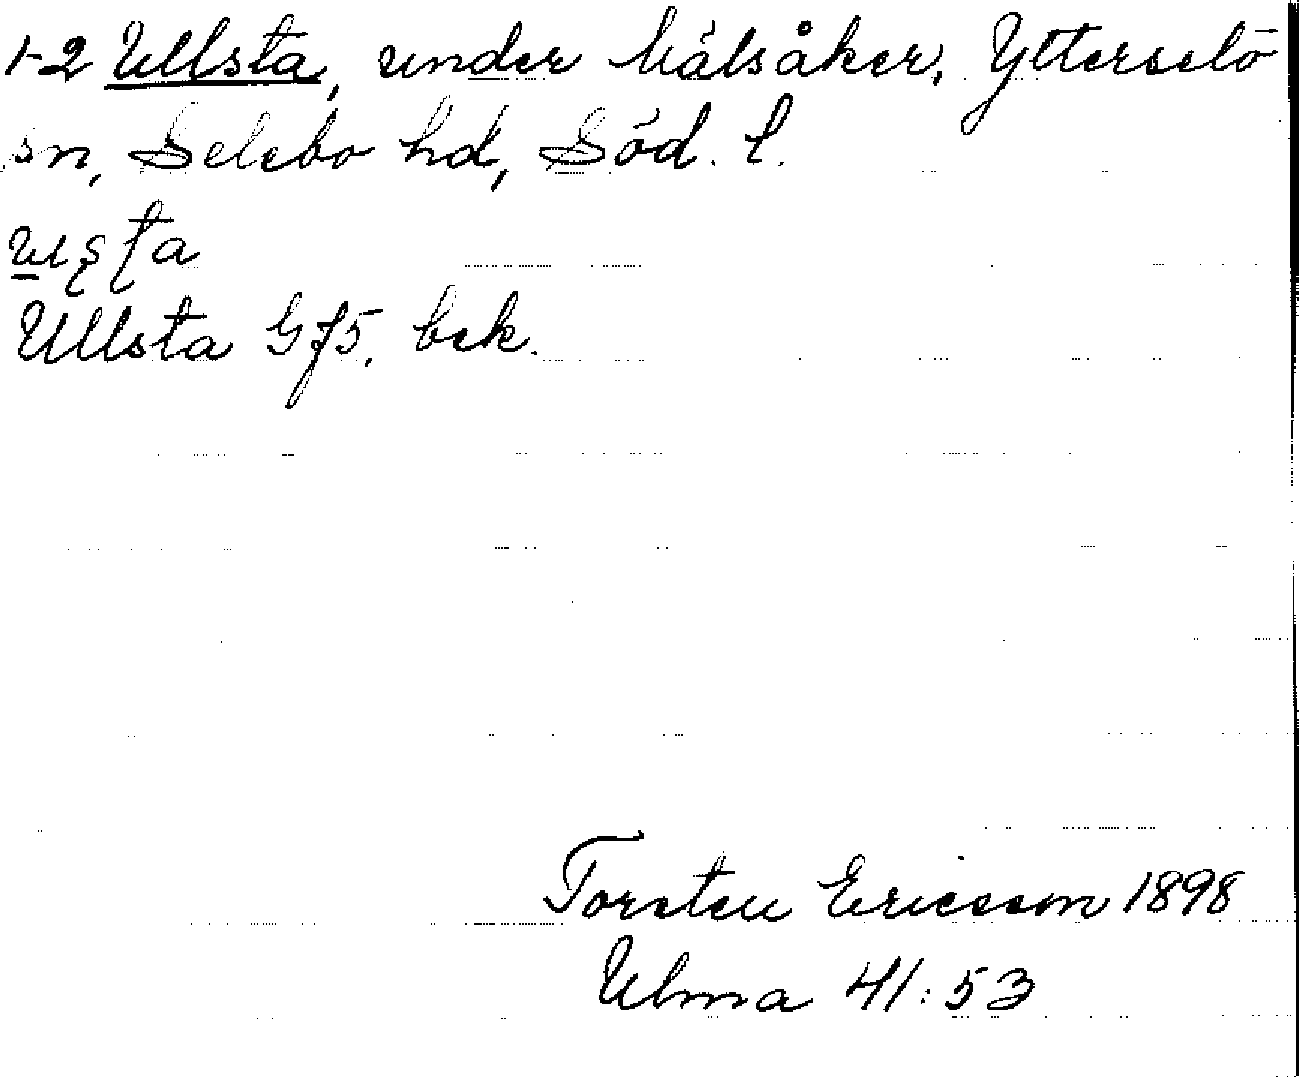 1-2 Ullsta, under Mälsåker, Ytterselö
sn, Selebo hd, Söd. l.
Ullsta GJ5, bek.
Torsten Ericsson 1898
Ulma 41:53